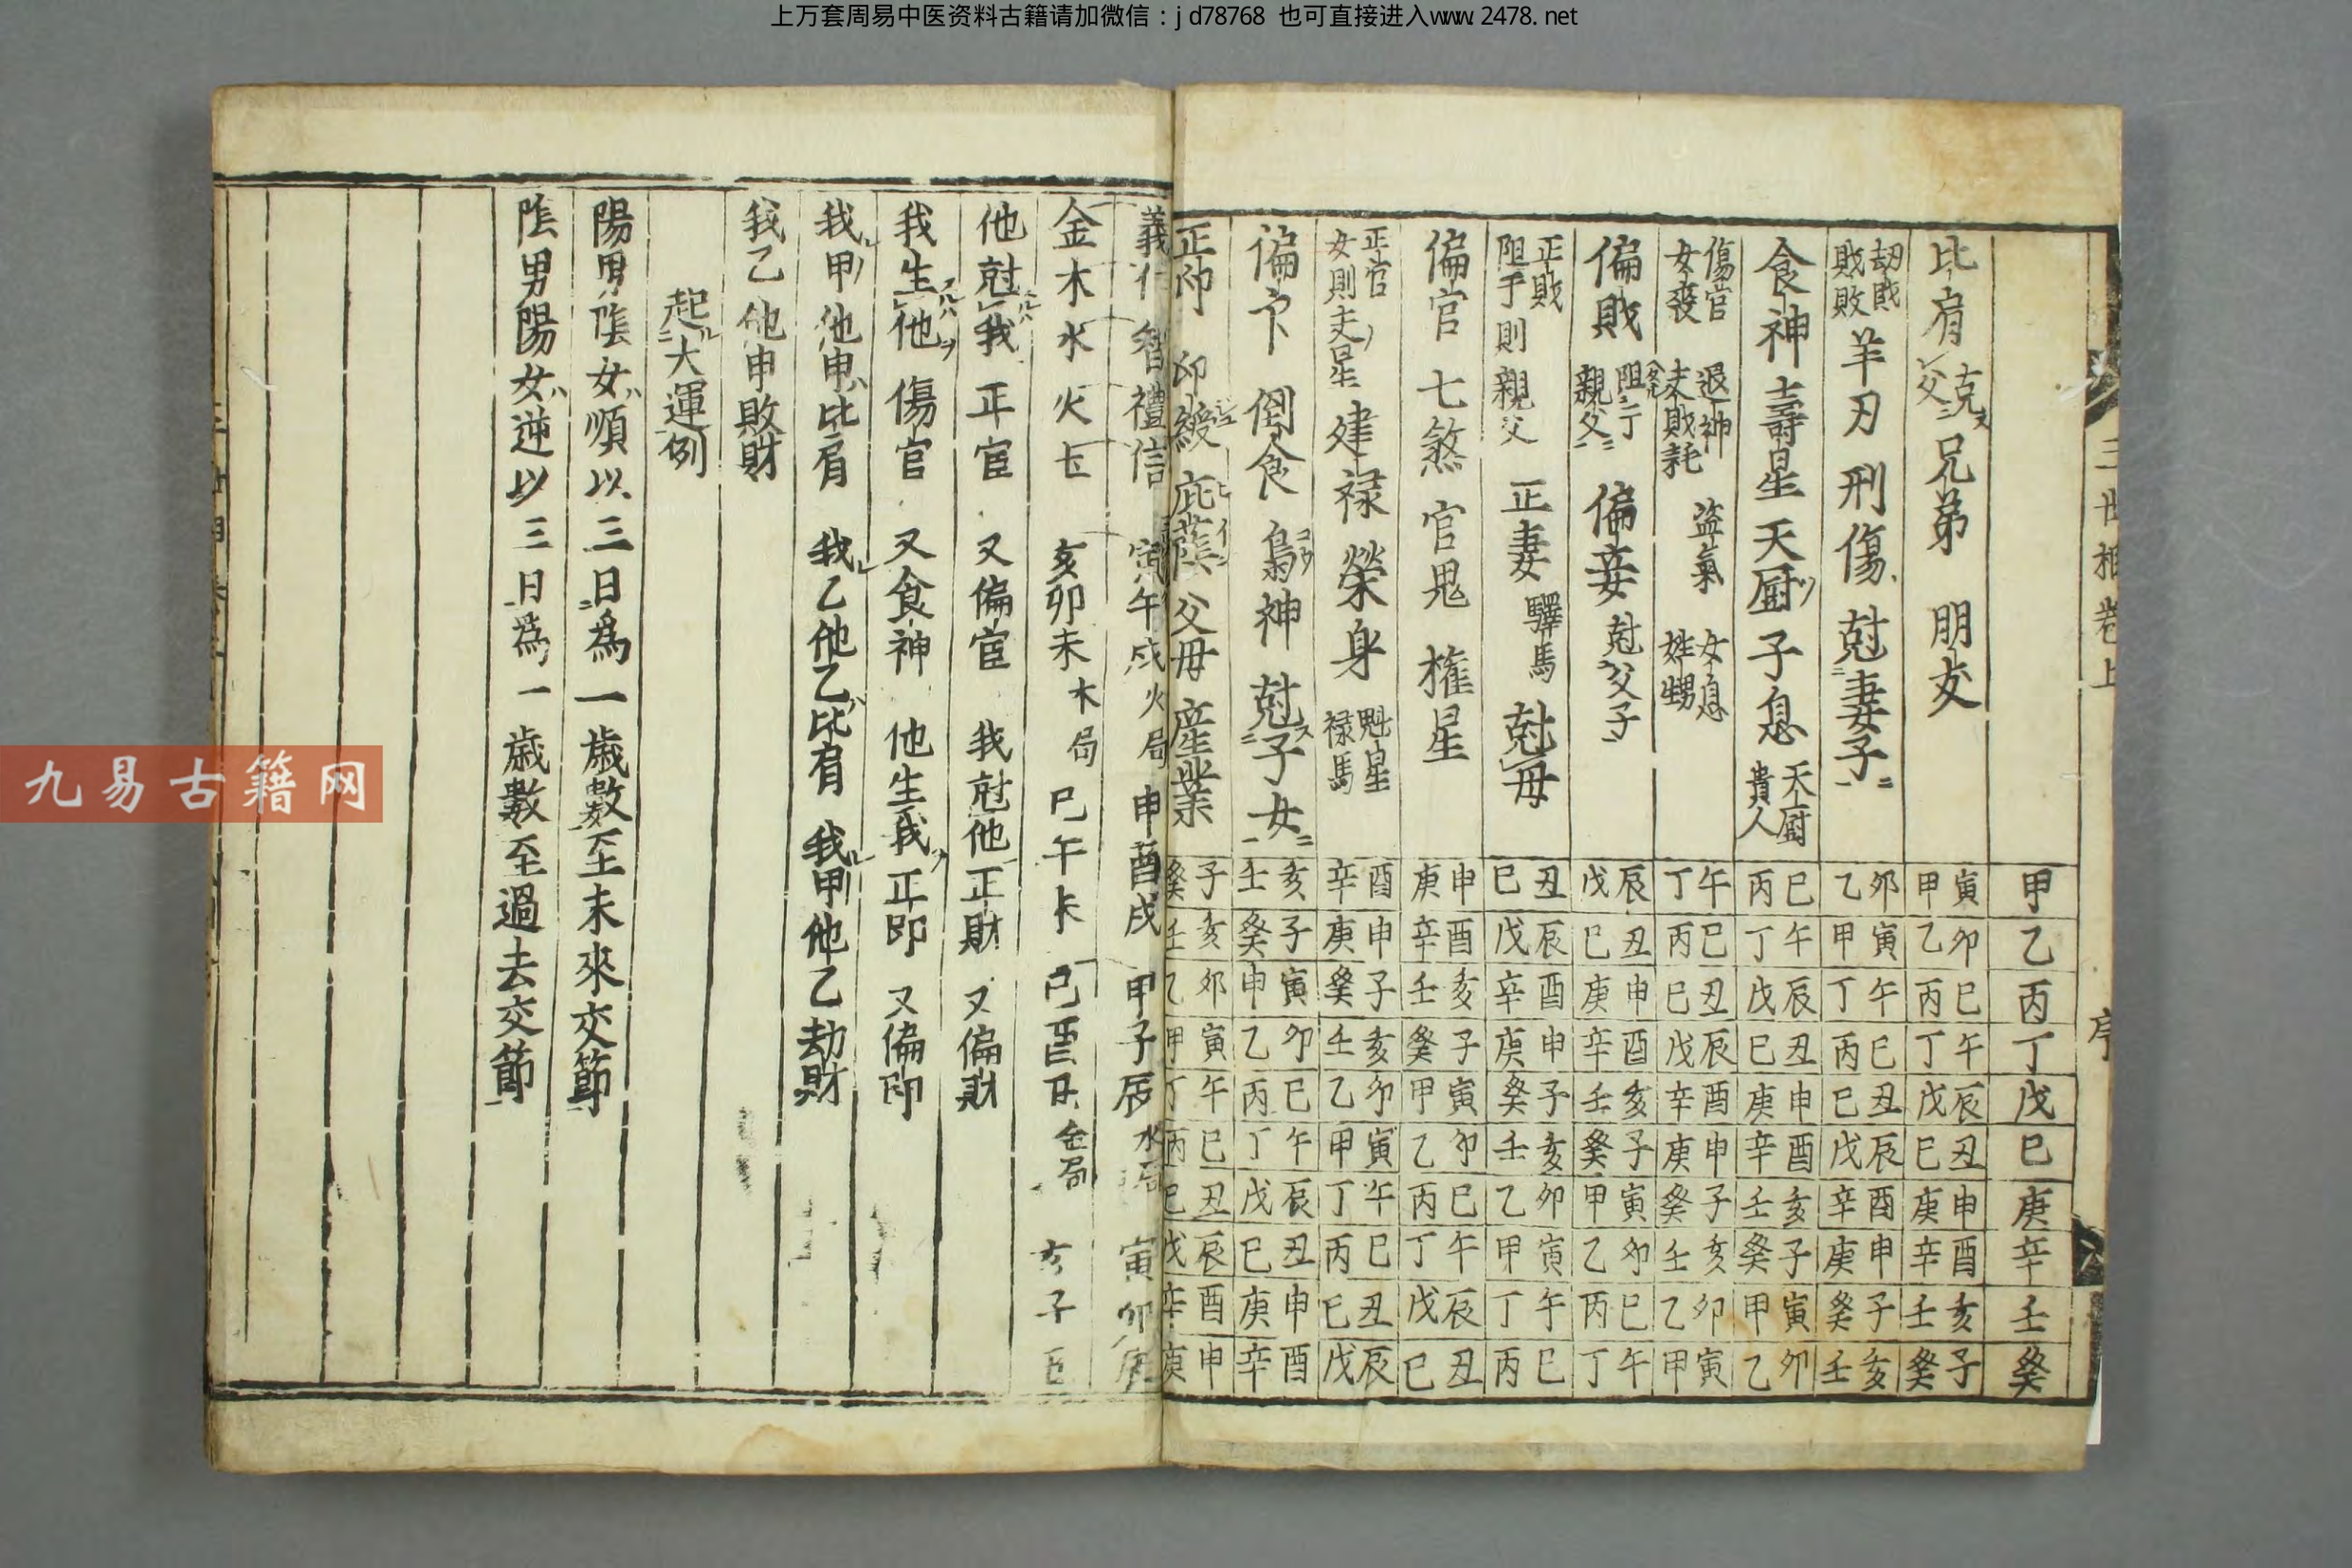 上万套周易中医资料古籍请加微信：jd78768 也可直接进入www.2478.net
三世相卷上 序
甲乙丙丁戊巳庚辛壬癸
比肩 克父ニ 兄弟 朋友
寅甲 卯乙 巳丙 午丁 辰戊 丑巳 申庚 酉辛 亥壬 子癸
劫財 敗財 羊刃 刑傷 尅妻子
卯乙 寅甲 午丁 巳丙 丑巳 辰戊 酉辛 申庚 子癸 亥壬
食神 壽星 天厨 子息 天厨 貴人
巳丙 午丁 辰戊 丑巳 申庚 酉辛 亥壬 子癸 寅甲 卯乙
傷官 女喪 退神 盗氣 女息 姓甥
午丁 巳丙 丑巳 辰戊 酉辛 申庚 子癸 亥壬 卯乙 寅甲
偏財 親父 偏妾 尅父子
辰戊 丑巳 申庚 酉辛 亥壬 子癸 寅甲 卯乙 巳丙 午丁
正財 阻手則 親父 正妻 驛馬 尅母
丑巳 辰戊 酉辛 申庚 子癸 亥壬 卯乙 寅甲 午丁 巳丙
偏官 七煞 官鬼 権星
申庚 酉辛 亥壬 子癸 寅甲 卯乙 巳丙 午丁 辰戊 丑巳
正官 女則夫星 建禄 榮身 魁星 禄馬
酉辛 申庚 子癸 亥壬 卯乙 寅甲 午丁 巳丙 丑巳 辰戊
偏卩 倒食 梟神 尅子女
亥壬 子癸 寅甲 卯乙 巳丙 午丁 辰戊 丑巳 申庚 酉辛
正印 印綬 庇蔭 父母 産業
子癸 亥壬 卯乙 寅甲 午丁 巳丙 丑巳 辰戊 酉辛 申庚
義仁智禮信 寅午戌火局 申酉戌 甲子辰水局 寅卯辰
金木水火土 亥卯未木局 巳午未 巳酉丑金局 亥子丑
他尅我 正官 又偏官 我尅他正財 又偏財
我生他 傷官 又食神 他生我正印 又偏印
我甲他申比肩 我乙他乙比肩 我甲他乙劫財
我乙他申敗財
起大運例
陽男陰女順以三日爲一歳數至未來交節
陰男陽女逆以三日爲一歳數至過去交節
九易古籍网